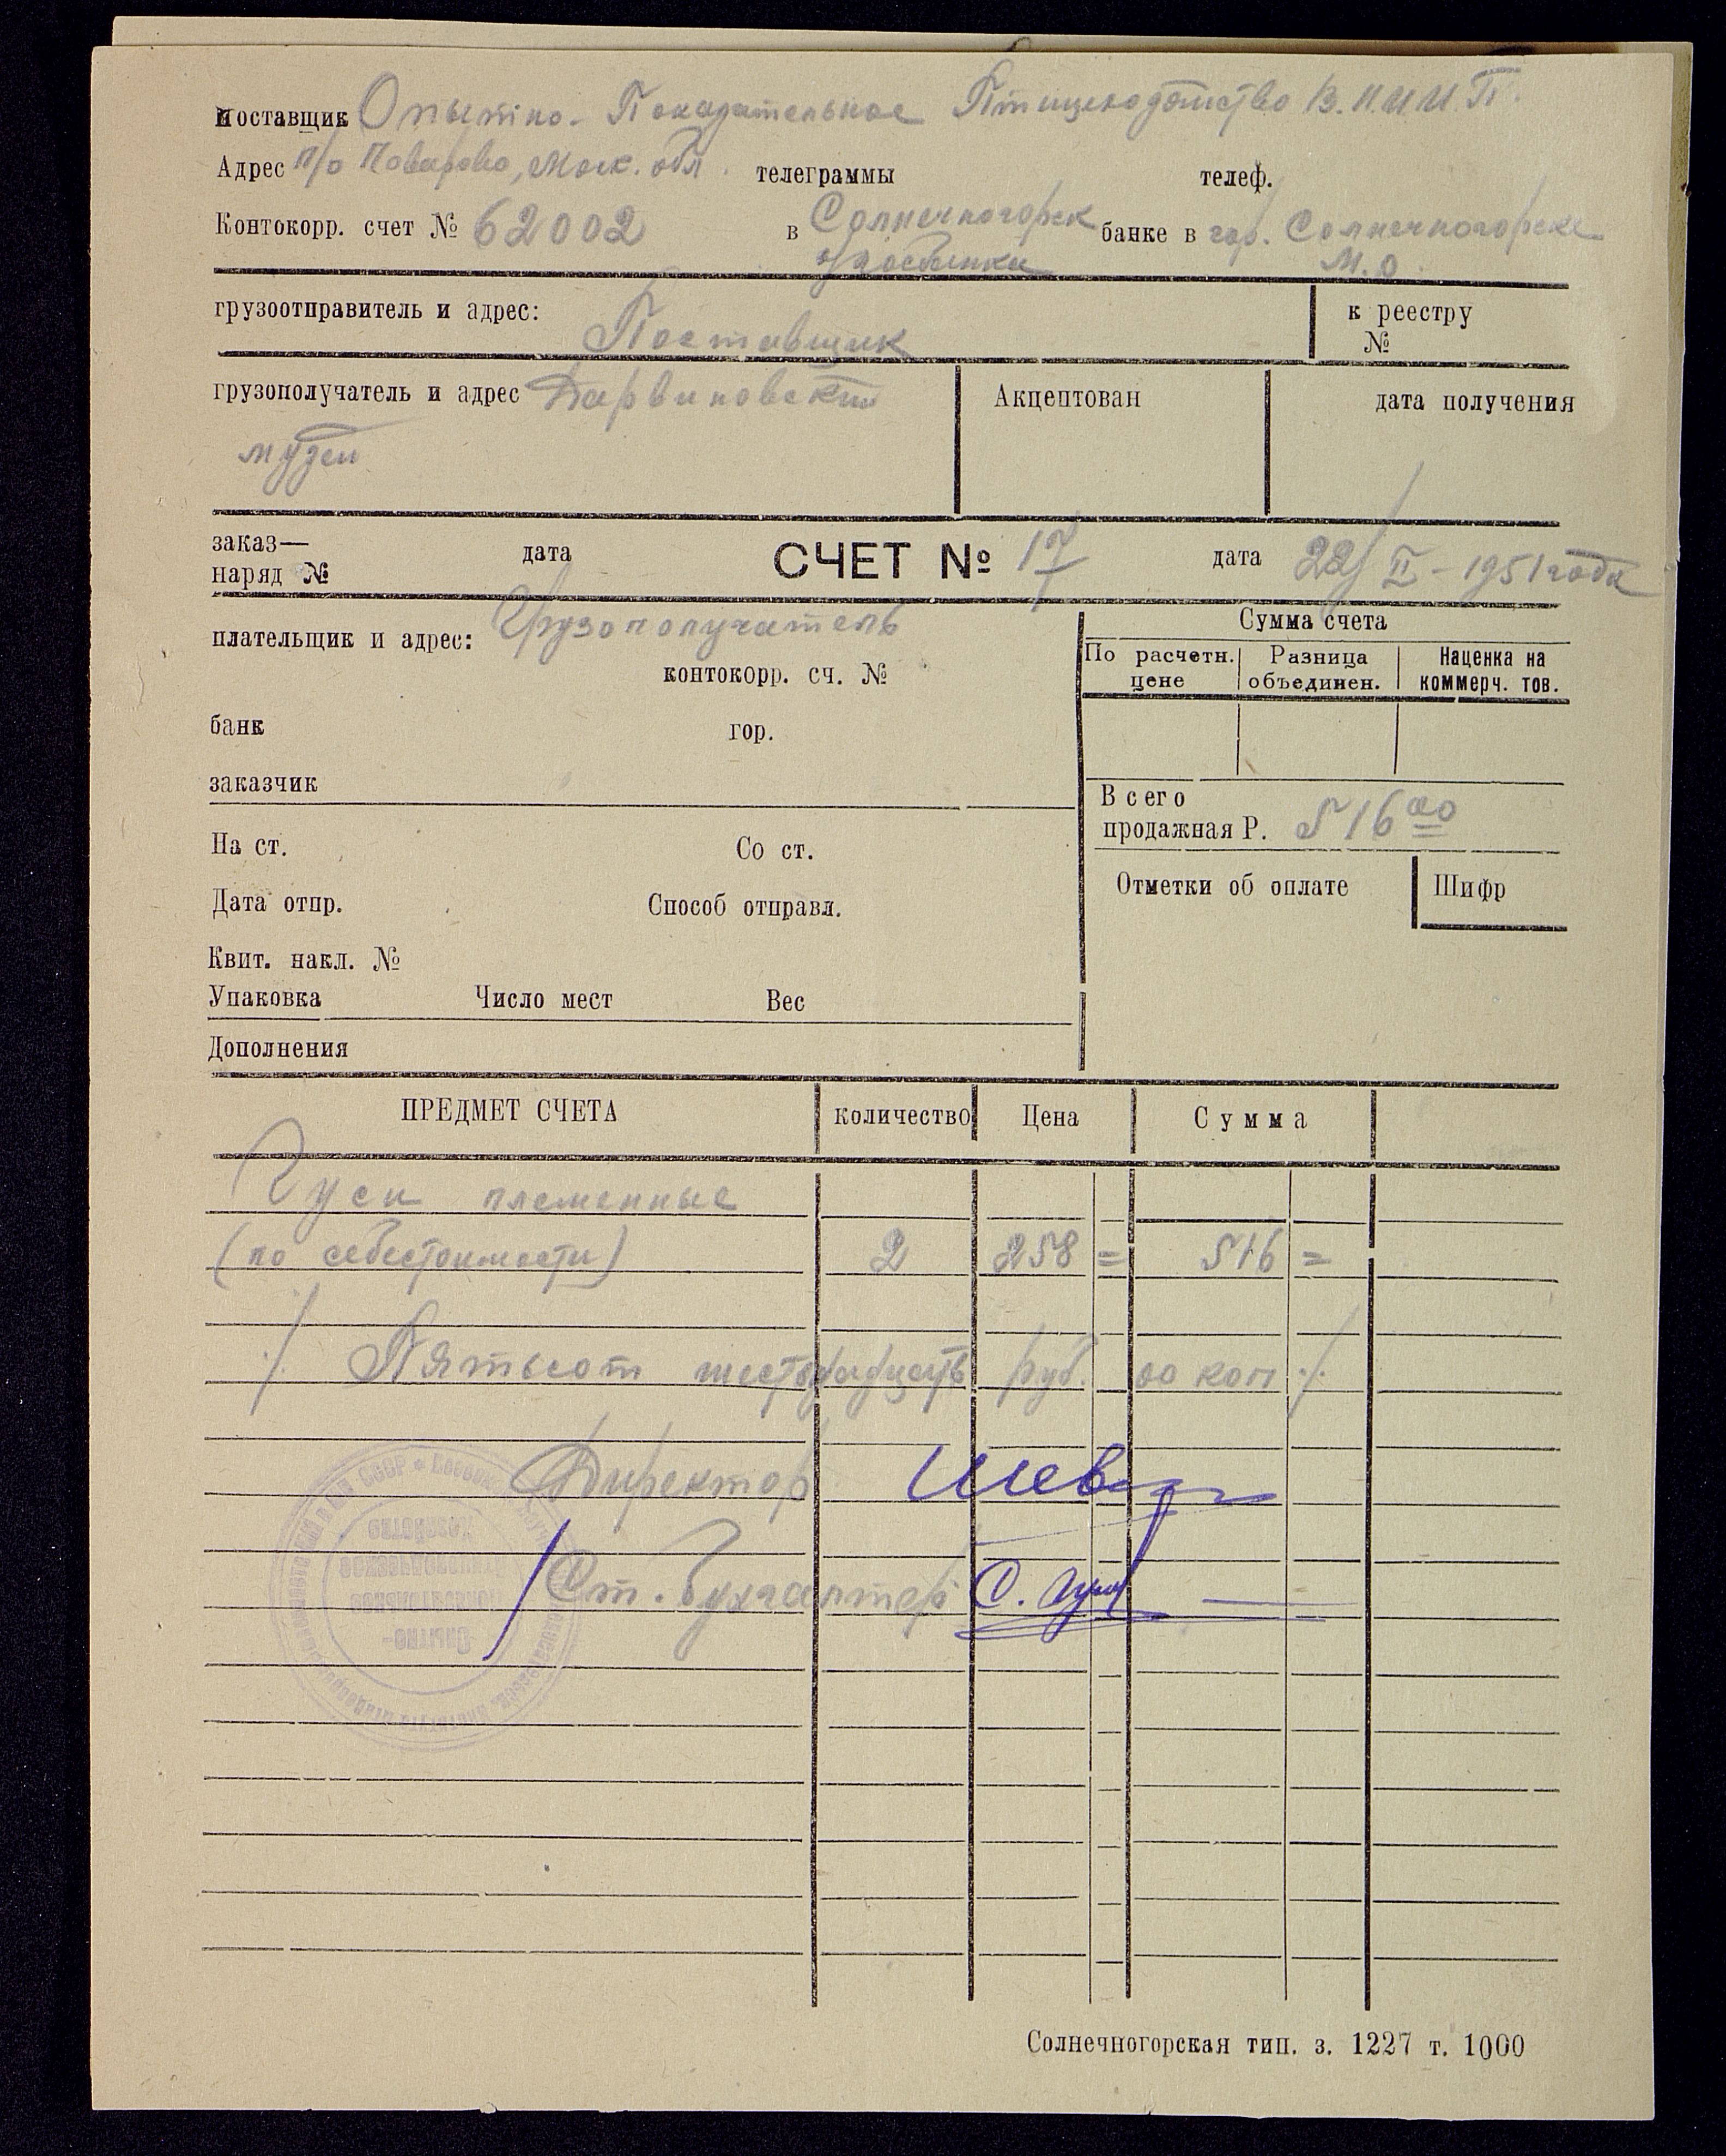 поставщик Опытно-Показательное Птицехозяйство В.Н.И.И.П.
Адрес п/о Поварово, Моск. обл. телеграммы телеф.
Контокорр. счет № 62002 в Солнечногорск банке в гор. Солнечногорске
Госбанка М.О.
грузоотправитель и адрес: Поставщик к реестру №
грузополучатель и адрес Дарвиновский Акцептован дата получения
музей
заказ—
наряд № дата СЧЕТ № 17 дата 22/II-1951 года
плательщик и адрес: Грузополучатель Сумма счета
контокорр. сч. № По расчетн. цене Разница объединен. Наценка на коммерч. тов.
банк гор.
заказчик
Всего
продажная Р. 516 00
На ст. Со ст.
Отметки об оплате Шифр
Дата отпр. Способ отправл.
Квит. накл. №
Упаковка Число мест Вес
Дополнения
ПРЕДМЕТ СЧЕТА количество Цена Сумма
Гуси племенные
(по себестоимости) 2 258 = 516 =
Пятьсот шестнадцать руб. 00 коп
Директор
Ст. бухгалтер
Опытно-
показательное
хозяйство
Солнечногорская тип. з. 1227 т. 1000